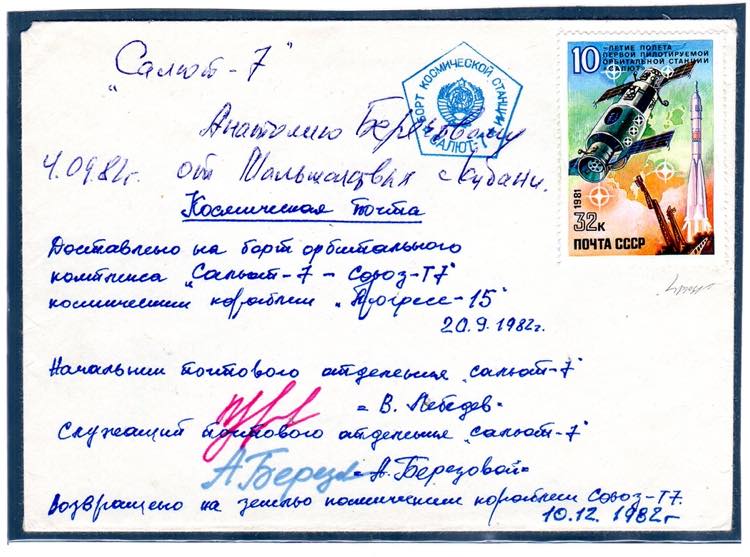 "Салют-7"
БОРТ КОСМИЧЕСКОЙ СТАНЦИИ
САЛЮТ-7
10-ЛЕТИЕ ПОЛЕТА
ПЕРВОЙ ПИЛОТИРУЕМОЙ
ОРБИТАЛЬНОЙ СТАНЦИИ
«САЛЮТ»
1981
32к
ПОЧТА СССР
Анатолию Березовому
4.09.82г. от Кубани.
Космическая почта
Доставлено на борт орбитального
комплекса "Сальют-7 - Союз-Т7"
космическим кораблем "Прогресс-15"
20.9.1982г.
Начальник почтового отделения "Сальют-7"
= В. Лебедев=
Служащий почтового отделения "Сальют-7"
А.Березов =А.Березовой=
Возвращено на землю космическим кораблем Союз-Т7.
10.12.1982г